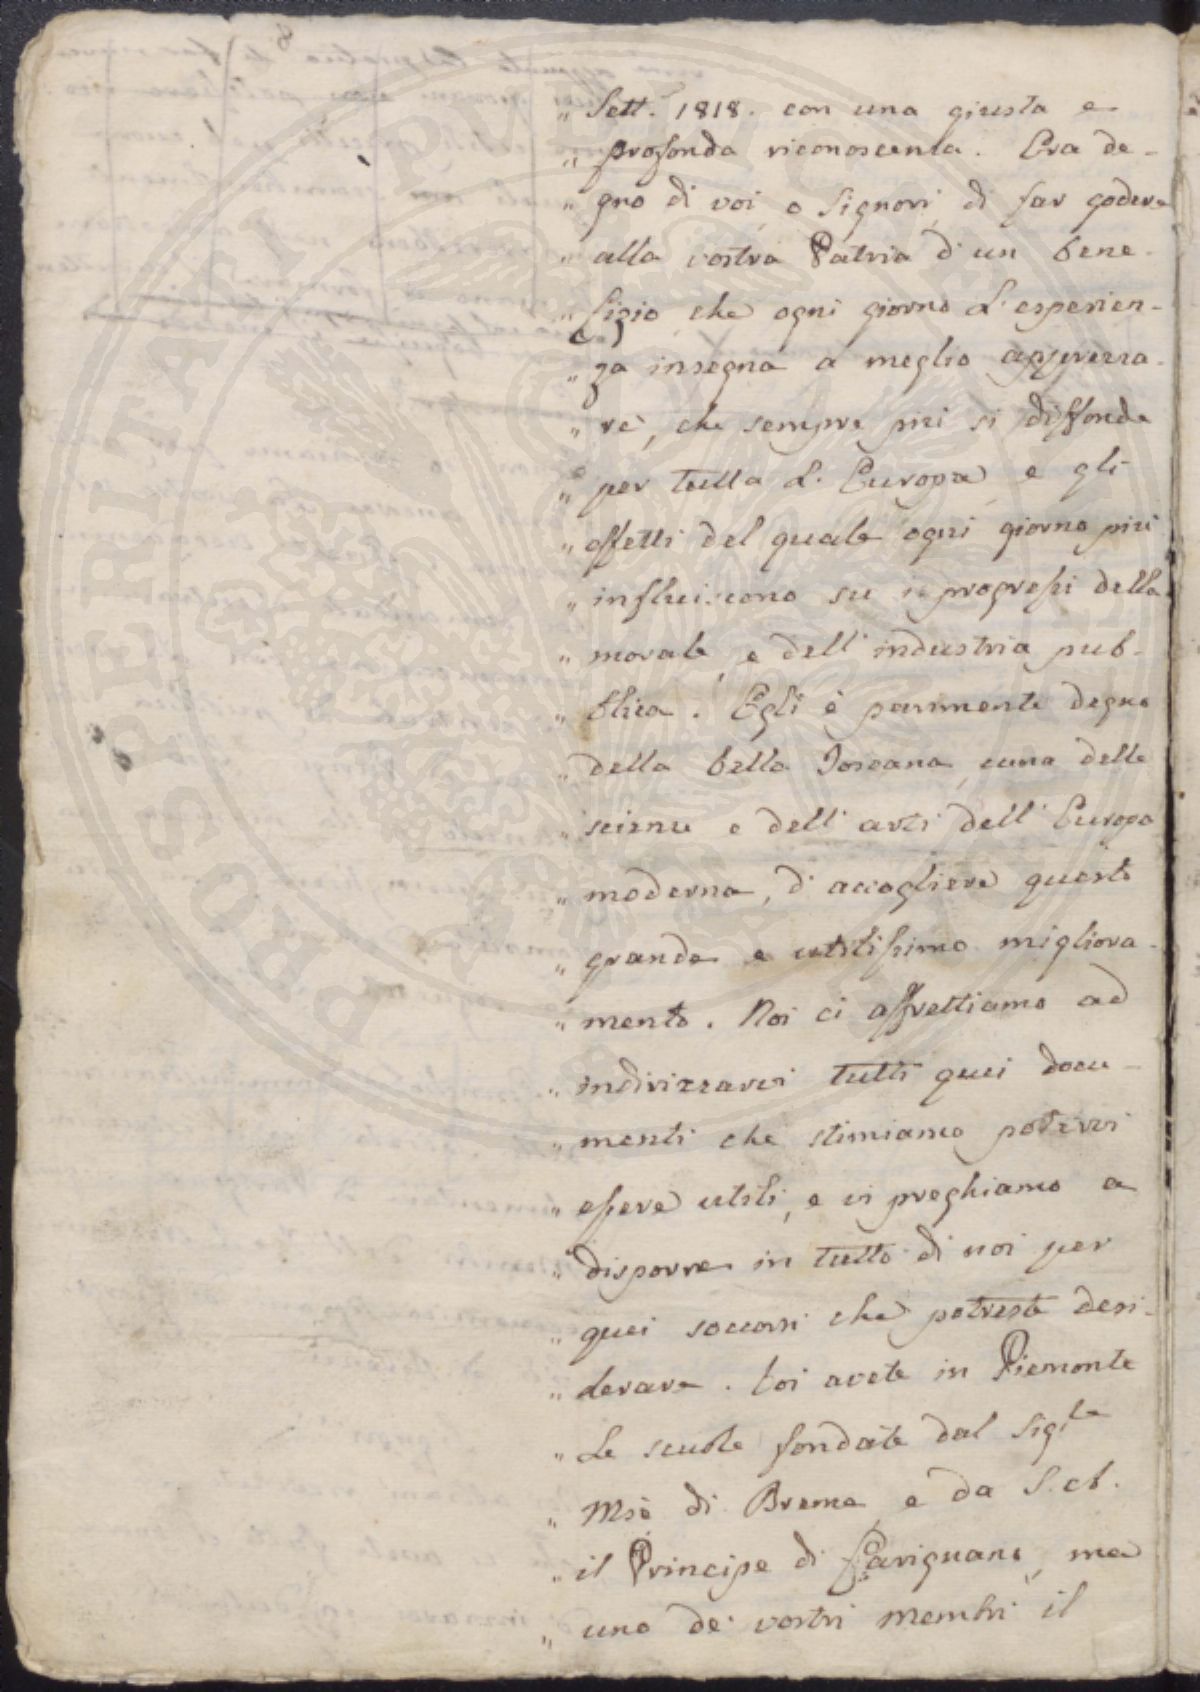 „ Sett. 1818. con una giusta e
„ profonda riconoscenza. Era de-
„ gno di voi, o Signori, di far godere
„ alla vostra Patria d'un bene-
„ fizio che ogni giorno l'esperien-
„ za insegna a meglio apprezza-
„ re, che sempre più si diffonde
„ per tutta l'Europa, e gli
„ effetti del quale ogni giorno più
„ influiscono su i progressi della
„ morale, e dell'industria pub-
„ blica. Egli è parimente degno
„ della bella Toscana, cuna delle
„ scienze e dell'arti dell'Europa
„ moderna, d'accogliere questo
„ grande e utilissimo migliora-
„ mento. Noi ci affrettiamo ad
„ indirizzarvi tutti quei docu-
„ menti che stimiamo potervi
„ essere utili, e vi preghiamo a
„ disporre in tutto di noi per
„ quei soccorsi che potreste desi-
„ derare. Voi avete in Piemonte
„ le scuole fondate dal Sig.le
„ Mse di Breme, e da S. A.
„ il Principe di Carignano, ma
„ uno de' vostri membri il
PROSPERITATI PVBLICAE